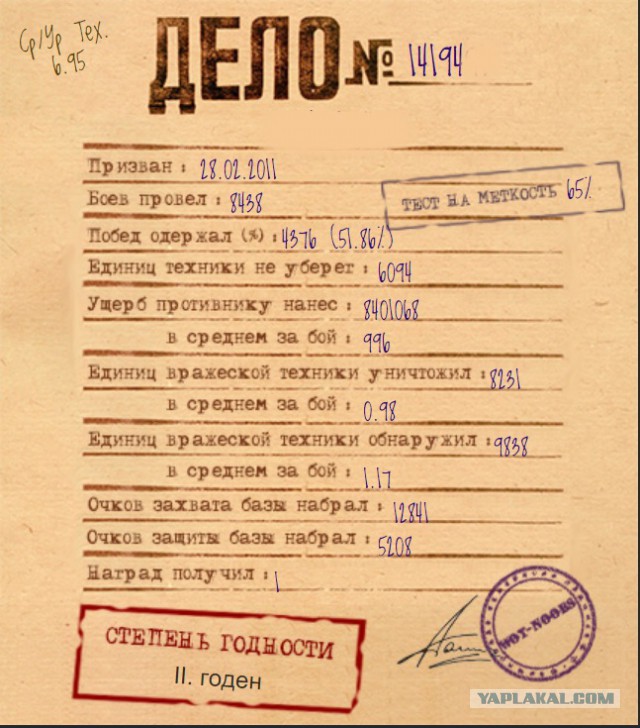 Ср/Ур Тех.
6.95
ДЕЛО № 14194
Призван : 28.02.2011
Боев провел : 8438
ТЕСТ НА МЕТКОСТЬ 65%
Побед одержал (%) : 4376 (51.86%)
Единиц техники не уберег : 6094
Ущерб противнику нанес : 8401068
в среднем за бой : 996
Единиц вражеской техники уничтожил : 8231
в среднем за бой : 0.98
Единиц вражеской техники обнаружил : 9838
в среднем за бой : 1.17
Очков захвата базы набрал : 12841
Очков защиты базы набрал : 5208
Наград получил : 1
СТЕПЕНЬ ГОДНОСТИ
II. годен
WOT-NOOBS
YAPLAKAL.COM